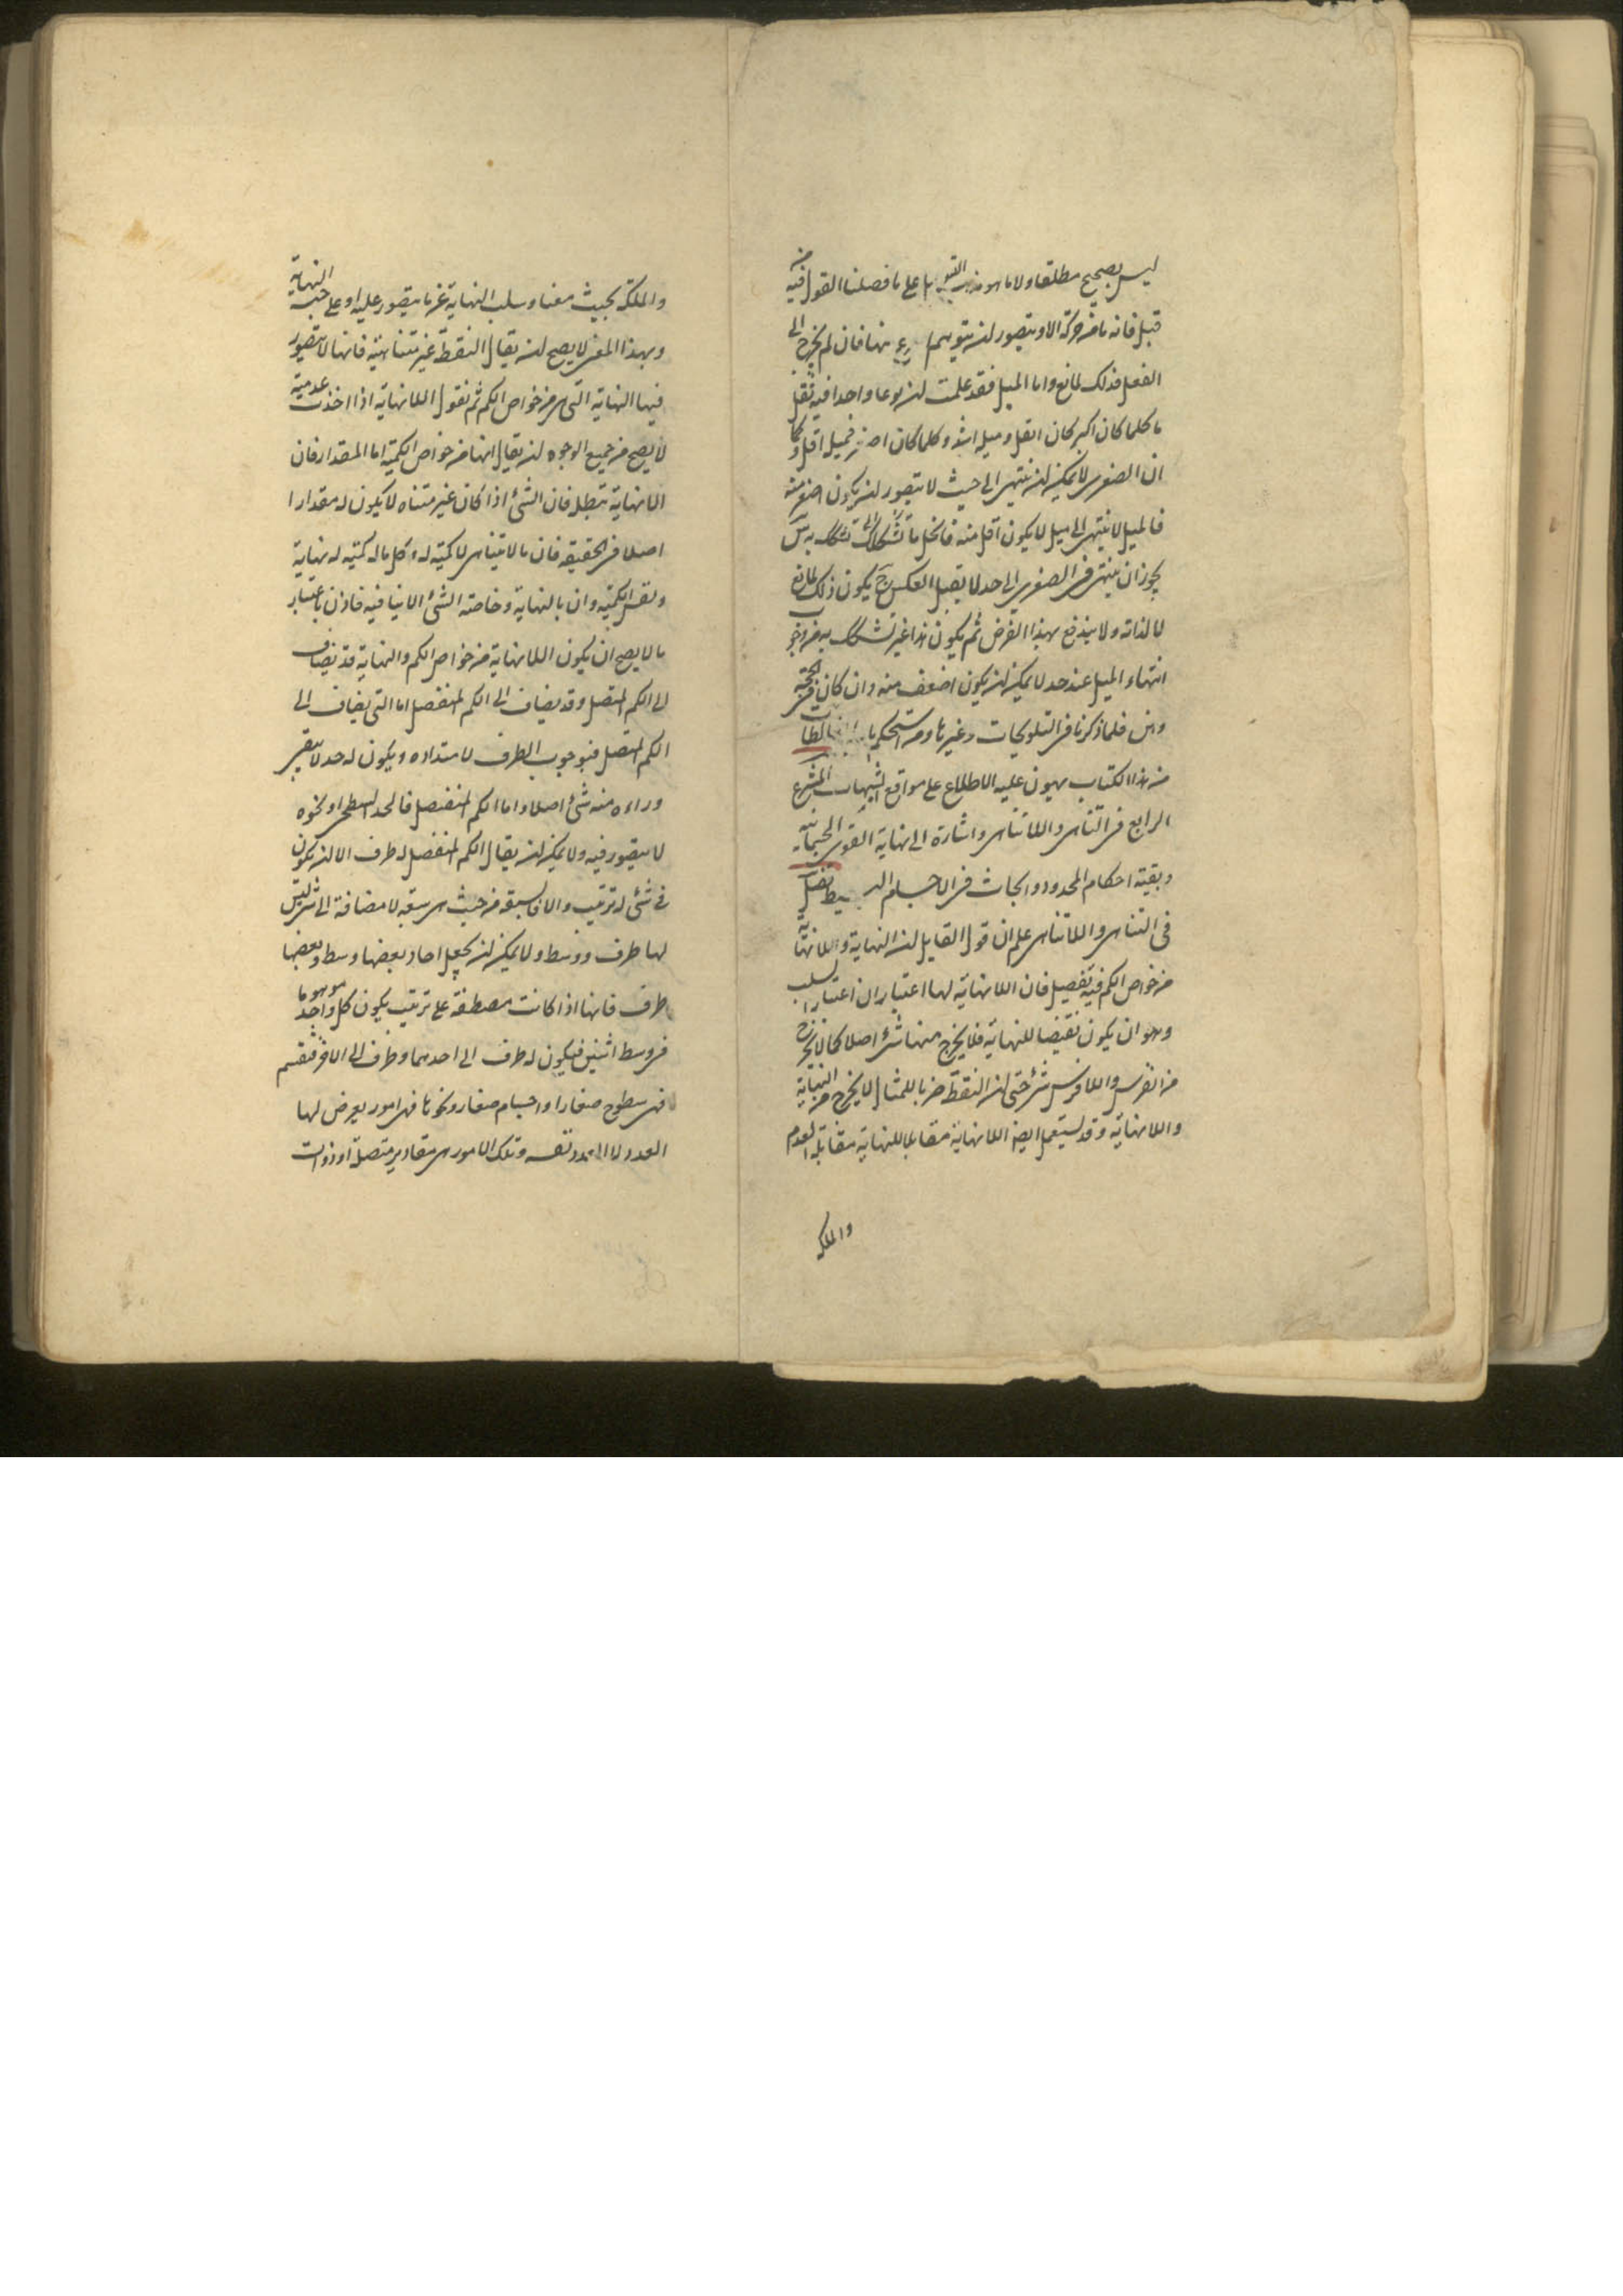 ليس بصحيح مطلقا ولا ما هو مذهب القوم بل على ما فصلنا القول فيه من
قبل فانه ما من حركة الا ويتصور ان يتوهم اسرع منها فان لم يخرج الى
الفعل فذلك لمانع واما الميل فقد علمت ان نوعا واحدا فيه ثقل
ما كلما كان اكبر كان اثقل وميله اشد وكلما كان اصغر فميله اقل وكما
ان الصغر لا يمكن ان ينتهى الى حيث لا يتصور ان يكون اصغر منه
فالميل لا ينتهى الى ميل لا يكون اقل منه فانحل ما تشكك المتشكك به
يجوز ان ينتهى فى الصغر الى حد لا يقبل العكس يكون ذلك لمانع
لا لذاته ولا يندفع بهذا الفرض ثم يكون هذا غير تشكك به من وجوب
انتهاء الميل عند حد لا يمكن ان يكون اضعف منه وان كان فى الحجة
وهن فلما ذكرنا فى التلويحات وغيرها ومن استحكم المغالطات
من هذا الكتاب يهون عليه الاطلاع على مواقع الشبهات المشرع
الرابع فى التناهى واللاتناهى واشارة الى نهاية القوى الجسمانية
وبقية احكام المحدود وابحاث فى الاجسام البسيطة فصل
فى التناهى واللاتناهى اعلم ان قول القايل ان النهاية واللانهاية
من خواص الكم فيه تفصيل فان اللانهاية لها اعتباران اعتبار السلب
وهو ان يكون نقيضا للنهاية فلا يخرج منهما شئ اصلا كما لا يخرج
من الفرس واللافرس شئ حتى ان النقطة ضربا للمثال لا يخرج من النهاية
واللانهاية وقد يستعمل ايضا اللانهاية مقابلا للنهاية مقابلة العدم
والملكة
والملكة بحيث معناه سلب النهاية عن ما يتصور عليه او على جنسه النهاية
وبهذا المعنى لا يصح ان يقال النقطة غير متناهية فانها لا يتصور
فيها النهاية التى هى من خواص الكم ثم نقول اللانهاية اذا اخذت عدمية
لا يصح من جميع الوجوه ان يقال انها من خواص الكمية اما المقدار فان
اللانهاية تبطله فان الشئ اذا كان غير متناه لا يكون له مقدار
اصلا فى الحقيقة فان ما لا يتناهى لا كمية له وكل ما له كمية له نهاية
وتقدر الكمية وان بالنهاية وخاصة الشئ لا ينافيه فاذن باعتبار
ما لا يصح ان يكون اللانهاية من خواص الكم والنهاية قد تضاف
الى الكم المتصل وقد يضاف الى الكم المنفصل اما التى يضاف الى
الكم المتصل فبوجوب الطرف لامتداده ويكون له حد لا يبقى
وراءه منه شئ اصلا واما الكم المنفصل فالحد السطحى او نحوه
لا يتصور فيه ولا يمكن ان يقال الكم المنفصل له طرف الا ان يكون
فى شئ له ترتيب والا فالسبعة من حيث هى سبعة لا مضافة الى شئ ليس
لها طرف ووسط ولا يمكن ان يجعل احاد بعضها وسط وبعضها
طرف فانها اذا كانت مصطفة على ترتيب يكون كل واحد موهوما
فى وسط اثنين فيكون له طرف الى احدهما وطرف الى الاخر فتنقسم
فهى سطوح صغار او اجسام صغار ونحوها فهى امور يعرض لها
العدد لا العدد نفسه وتلك الامور هى مقادير متصلة او ذوات